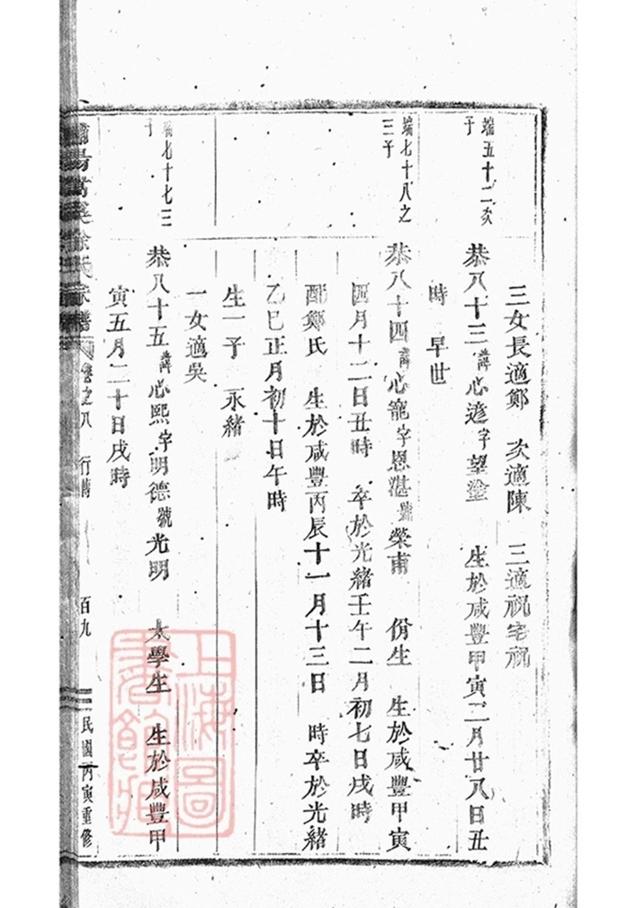 三女長適鄭 次適陳 三適祝宅祝
端五十二次子
恭八十三講心遊字望瀅 生於咸豐甲寅二月廿八日丑
時 早世
端七十八之三子
恭八十四講心寵字恩湛號榮甫 佾生 生於咸豐甲寅
四月十二日丑時 卒於光緒壬午二月初七日戌時
配鄭氏 生於咸豐丙辰十一月十三日 時卒於光緒
乙巳正月初十日午時
生一子 永緒
一女適吳
端七十七三子
恭八十五講心熙字明德號光明 太學生 生於咸豐甲
寅五月二十日戌時
徐氏宗譜 卷之八 行講 百九 民國丙寅重修
上海圖書館藏